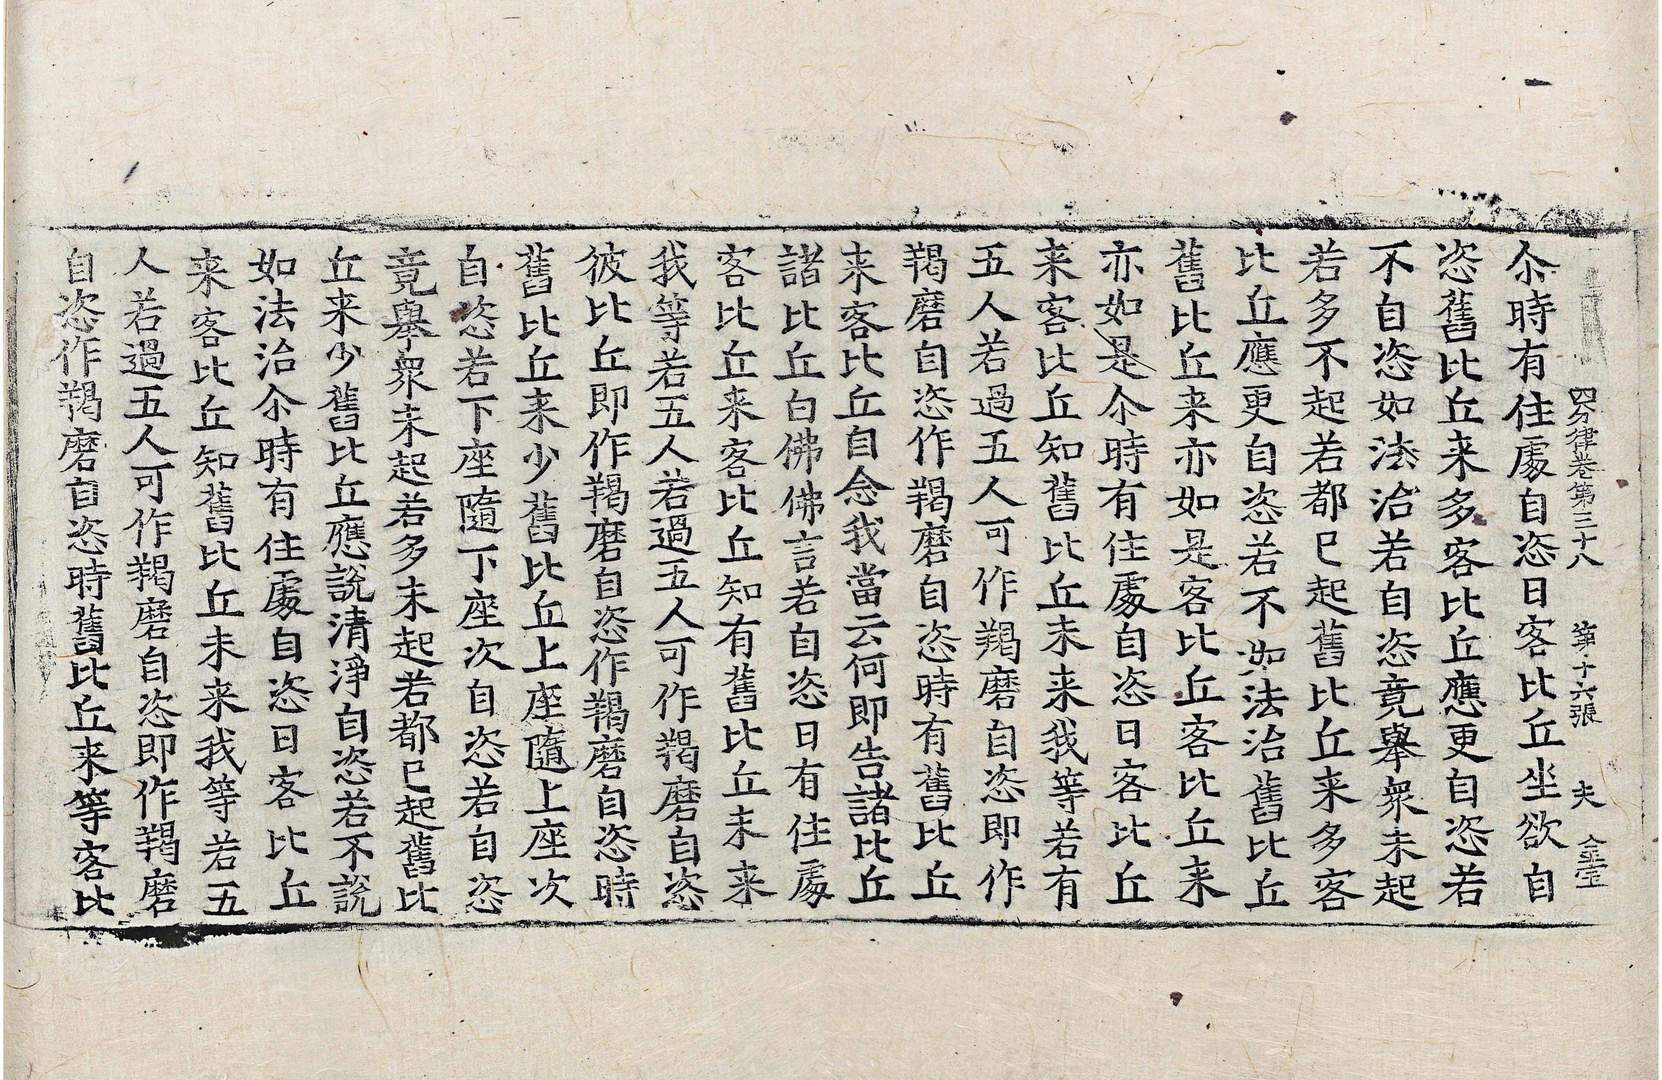 四分律卷第三十八 第十六張 夫
尒時有住處自恣日客比丘坐欲自
恣舊比丘来多客比丘應更自恣若
不自恣如法治若自恣竟舉衆未起
若多不起若都已起舊比丘来多客
比丘應更自恣若不如法治舊比丘
舊比丘来亦如是客比丘客比丘来
亦如是尒時有住處自恣日客比丘
来客比丘知舊比丘未来我等若有
五人若過五人可作羯磨自恣即作
羯磨自恣作羯磨自恣時有舊比丘
来客比丘自念我當云何即告諸比丘
諸比丘白佛佛言若自恣日有住處
客比丘来客比丘知有舊比丘未来
我等若五人若過五人可作羯磨自恣
彼比丘即作羯磨自恣作羯磨自恣時
舊比丘来少舊比丘上座隨上座次
自恣若下座隨下座次自恣若自恣
竟舉衆未起若多未起若都已起舊比
丘来少舊比丘應說清淨自恣若不說
如法治尒時有住處自恣日客比丘
来客比丘知舊比丘未来我等若五
人若過五人可作羯磨自恣即作羯磨
自恣作羯磨自恣時舊比丘来等客比